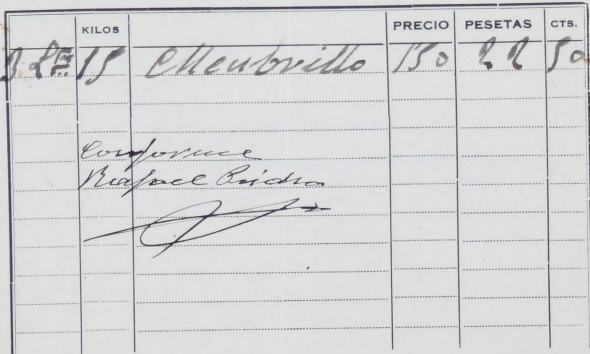 KILOS PRECIO PESETAS CTS.
15 Menbrillo 150 22 50
Conforme
Rafael